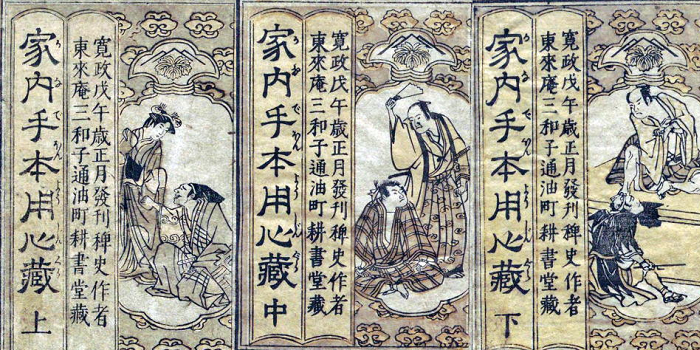 寛政戊午歳正月發刊稗史作者
東來庵三和子通油町耕書堂藏
家内手本用心藏 上
寛政戊午歳正月發刊稗史作者
東來庵三和子通油町耕書堂藏
家内手本用心藏 中
寛政戊午歳正月發刊稗史作者
東來庵三和子通油町耕書堂藏
家内手本用心藏 下